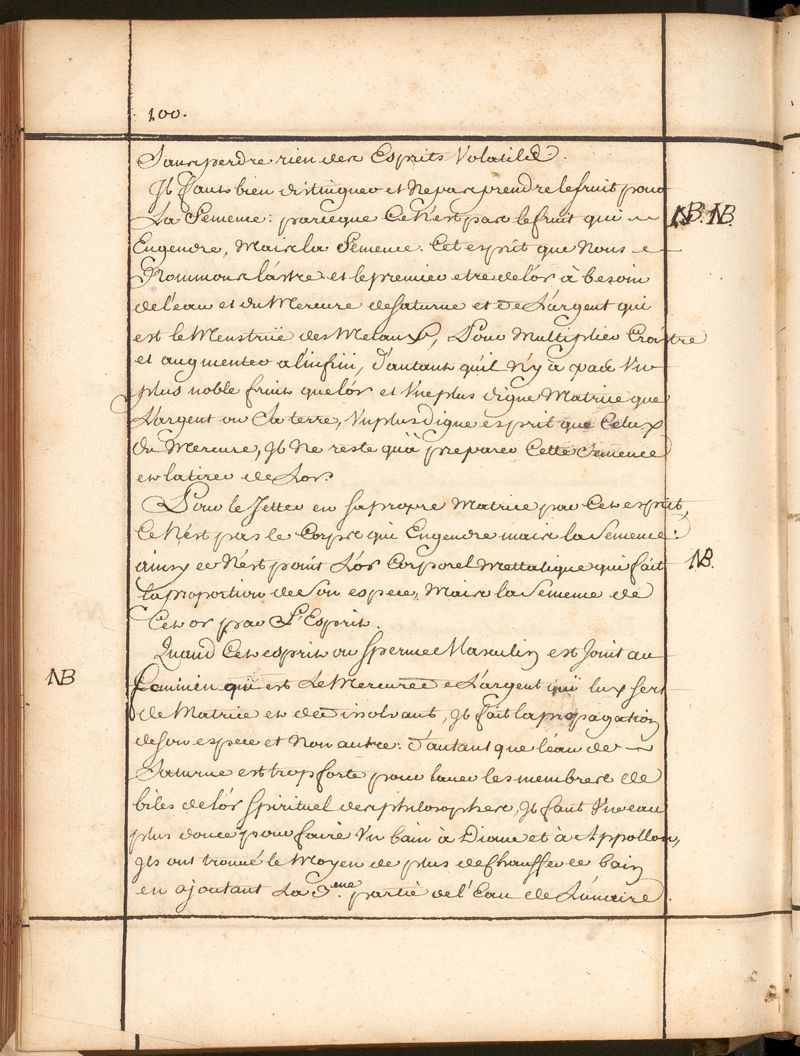 100.
Sans perdre rien des Esprits Volatiles.
Il faut bien distinguer et Ne pas prendre le fruit pour
La Semence: parceque Ce N'est pas le fruit qui
NB. NB.
Engendre, Mais la Semence. Cet esprit que Nous
Nommons l'astre et le premier etre de l'or à besoin
de l'eau et du Mercure de saturne et de L'argent qui
est le Menstruë des Metaux, Pour Multiplier Croistre
et augmenter a l'infini, d'autant qu'il N'y à pas Vn
plus noble fruit que l'or et Vne plus digne Matrice que
L'argent ou Sa terre, Vn plus digne esprit que Celuy
du Mercure, Il Ne reste qu'à preparer Cette Semence
et la tirer de Lor.
Pour le Jetter en sa propre Matrice par Cet esprit,
Ce N'est pas le Corps qui Engendre mais la Semence:
ainsy ce N'est point L'or Corporel Mettalique qui fait
NB.
la proportion de Son espece, Mais la Semence de
Cet or par L'Esprit.
Quand Cet esprit ou sperme Masculin est Joint au
NB
feminin qui est Le Mercure de L'argent qui luy sert
de Matrice et de dissolvant, Il fait la propagation
de son espece et Non autre. d'autant que l'eau de
Saturne est trop forte pour laver les membres de
biles de l'or spirituel des philosophes, Il faut Vne eau
plus douce pour faire Vn bain à Diane et à Appollon,
Ils ont trouvé le Moyen de plus de chauffer ce bain
en ajoutant La 3.eme partie de l'Eau de Lunaire